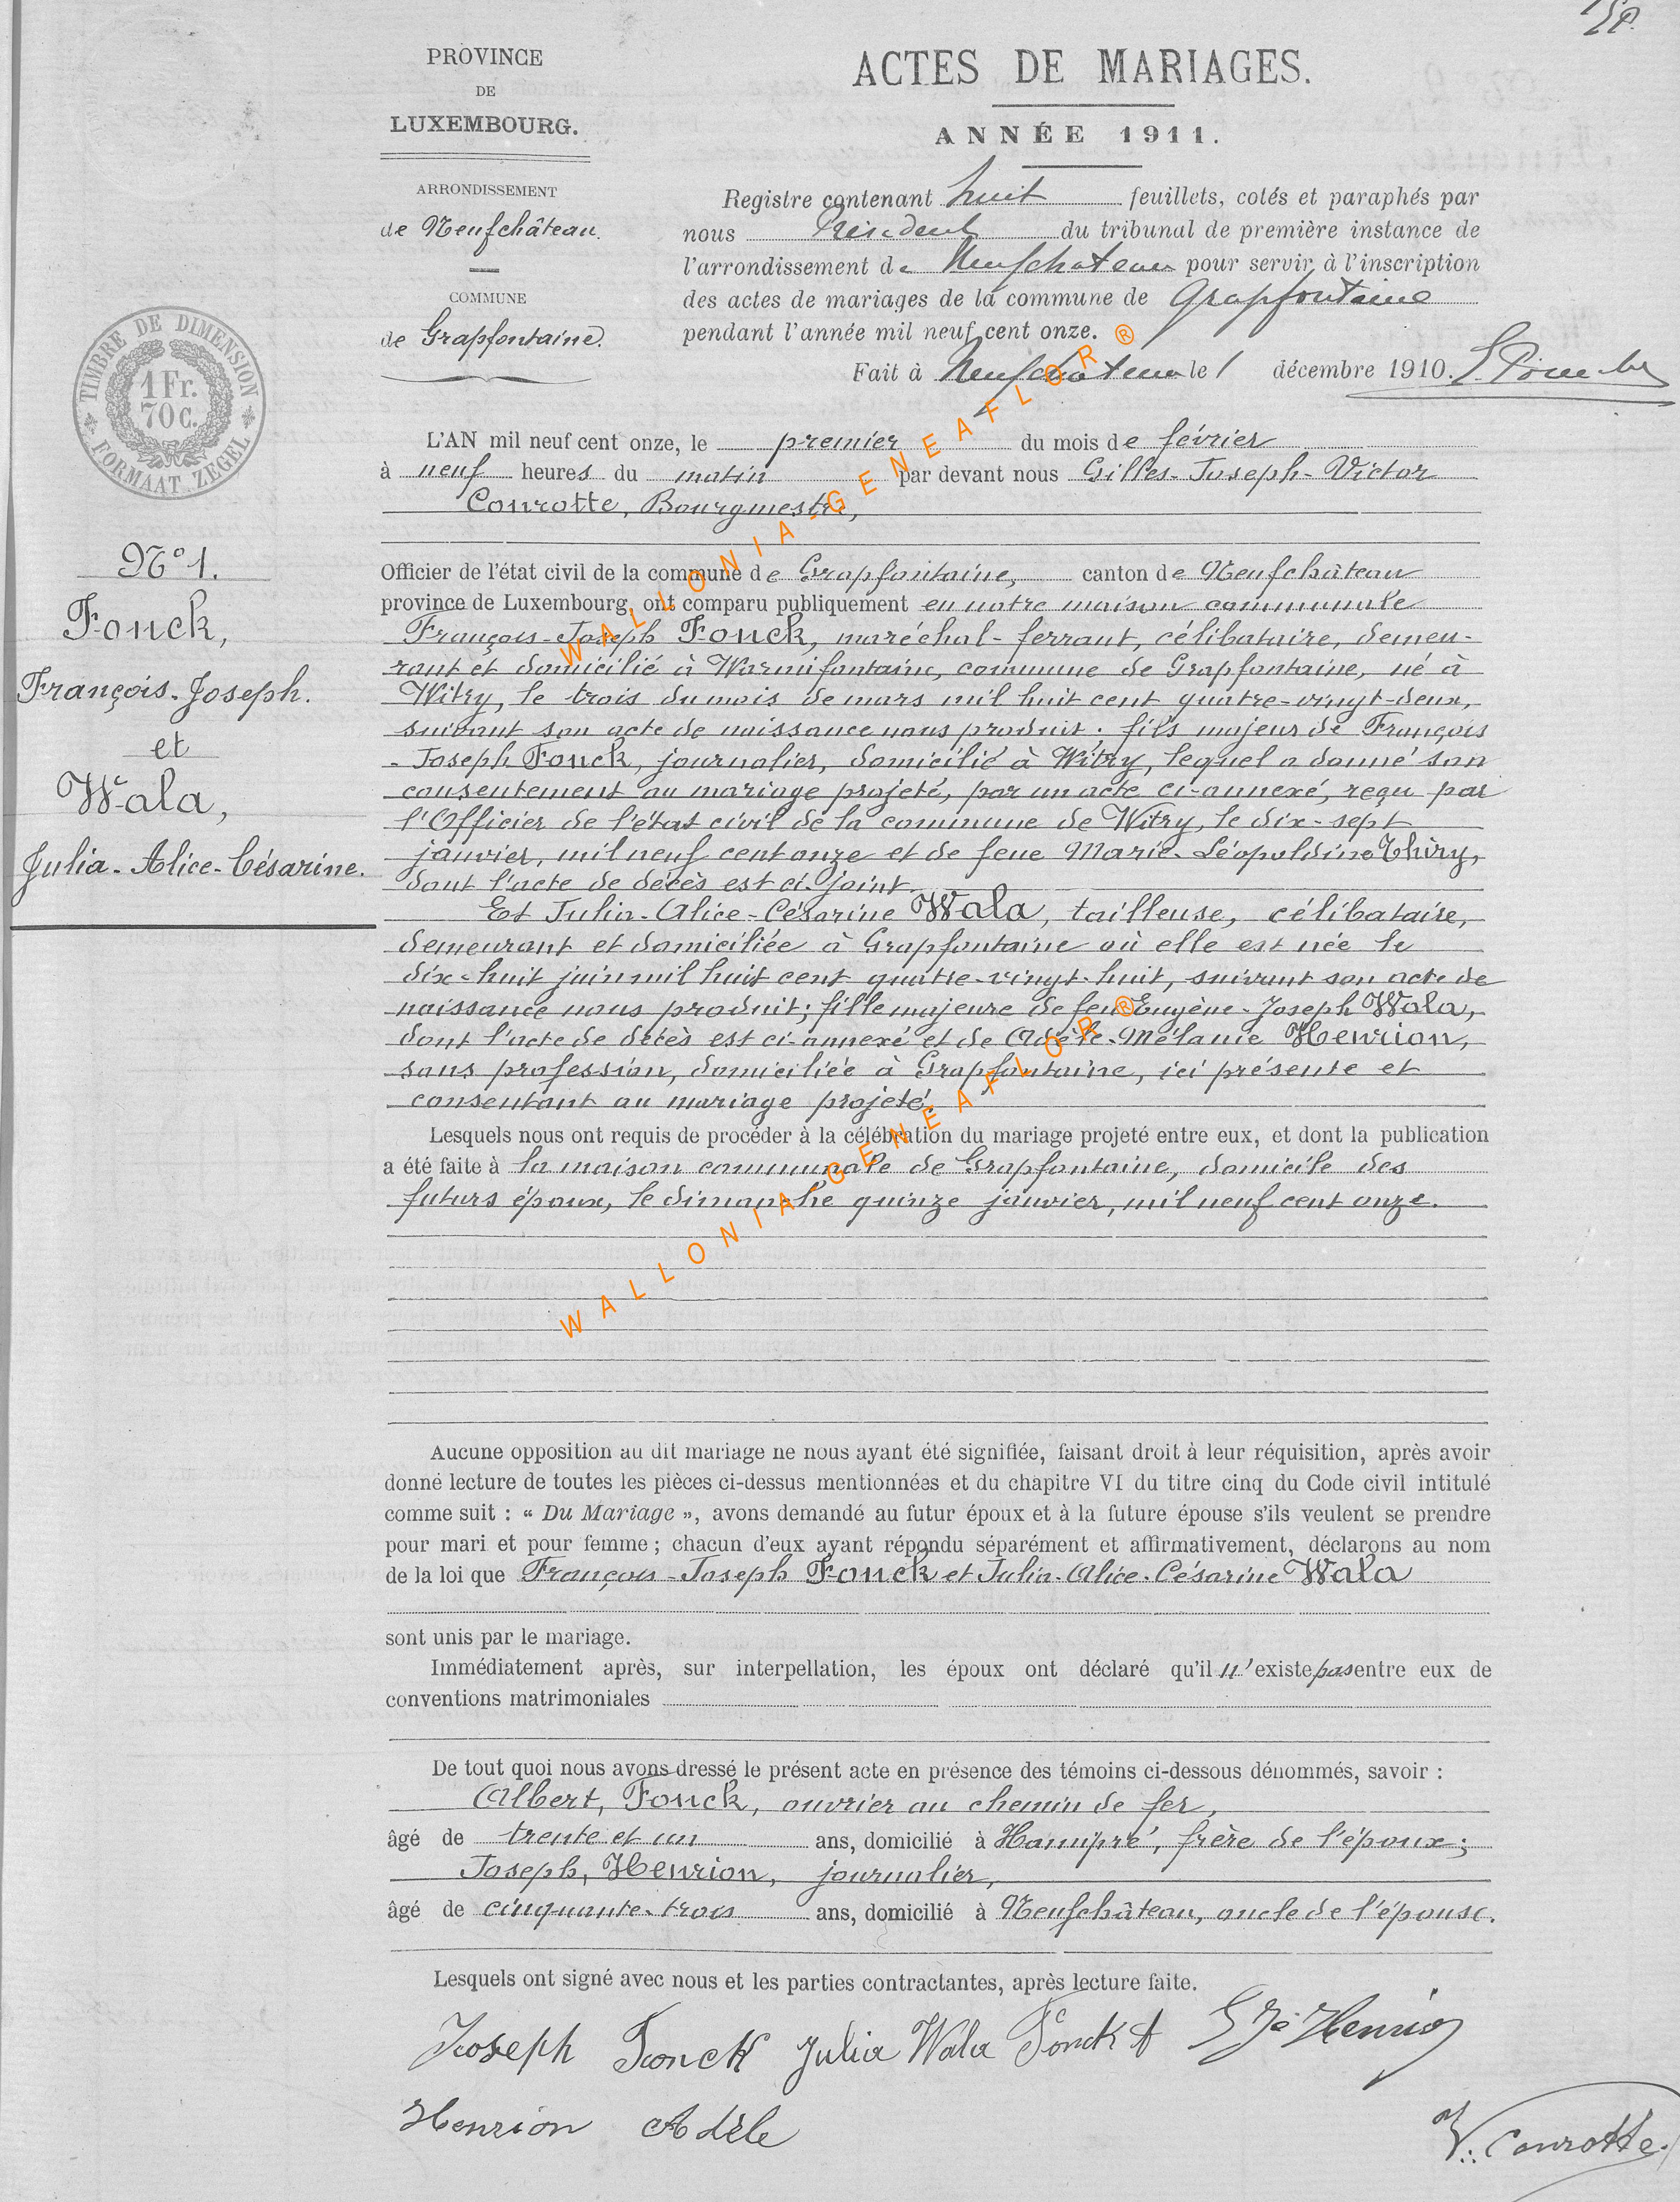 PROVINCE
DE
LUXEMBOURG.
ARRONDISSEMENT
de Neufchâteau.
COMMUNE
de Grapfontaine.
ACTES DE MARIAGES.
ANNÉE 1911.
Registre contenant huit feuillets, cotés et paraphés par
nous Président du tribunal de première instance de
l'arrondissement de Neufchateau pour servir à l'inscription
des actes de mariages de la commune de Grapfontaine
pendant l'année mil neuf cent onze.
Fait à Neufchateau le 1 décembre 1910.
TIMBRE DE DIMENSION
1 Fr.
70 c.
FORMAAT ZEGEL
N° 1.
Fonck,
François-Joseph.
et
Wala,
Julia-Alice-Césarine.
L'AN mil neuf cent onze, le premier du mois de février
à neuf heures du matin par devant nous Gilles-Joseph-Victor
Conrotte, Bourgmestre,
Officier de l'état civil de la commune de Grapfontaine, canton de Neufchâteau
province de Luxembourg, ont comparu publiquement en notre maison communale
François-Joseph Fonck, maréchal-ferrant, célibataire, demeu-
rant et domicilié à Warmifontaine, commune de Grapfontaine, né à
Witry, le trois du mois de mars mil huit cent quatre-vingt-deux,
suivant son acte de naissance nous produit; fils majeur de François
-Joseph Fonck, journalier, domicilié à Witry, lequel a donné son
consentement au mariage projeté, par un acte ci-annexé, reçu par
l'Officier de l'état civil de la commune de Witry, le dix-sept
janvier, mil neuf cent onze et de feue Marie-Léopoldine Thiry,
dont l'acte de décès est ci-joint.
Et Julia-Alice-Césarine Wala, tailleuse, célibataire,
demeurant et domiciliée à Grapfontaine où elle est née le
dix-huit juin mil huit cent quatre-vingt-huit, suivant son acte de
naissance nous produit; fille majeure de feu Eugène-Joseph Wala,
dont l'acte de décès est ci-annexé et de Adèle-Mélanie Henrion,
sans profession, domiciliée à Grapfontaine, ici présente et
consentant au mariage projeté.
Lesquels nous ont requis de procéder à la célébration du mariage projeté entre eux, et dont la publication
a été faite à la maison communale de Grapfontaine, domicile des
futurs époux, le dimanche quinze janvier, mil neuf cent onze.
Aucune opposition au dit mariage ne nous ayant été signifiée, faisant droit à leur réquisition, après avoir
donné lecture de toutes les pièces ci-dessus mentionnées et du chapitre VI du titre cinq du Code civil intitulé
comme suit : « Du Mariage », avons demandé au futur époux et à la future épouse s'ils veulent se prendre
pour mari et pour femme ; chacun d'eux ayant répondu séparément et affirmativement, déclarons au nom
de la loi que François-Joseph Fonck et Julia-Alice-Césarine Wala
sont unis par le mariage.
Immédiatement après, sur interpellation, les époux ont déclaré qu'il n'existe pas entre eux de
conventions matrimoniales
De tout quoi nous avons dressé le présent acte en présence des témoins ci-dessous dénommés, savoir :
Albert, Fonck, ouvrier au chemin de fer,
âgé de trente et un ans, domicilié à Hamipré, frère de l'époux;
Joseph, Henrion, journalier,
âgé de cinquante-trois ans, domicilié à Neufchâteau, oncle de l'épouse.
Lesquels ont signé avec nous et les parties contractantes, après lecture faite.
Joseph Fonck Julia Wala Fonck A Henrion
Henrion Adèle
V. Conrotte.
WALLONIA-GENEAFLOR ®
WALLONIA-GENEAFLOR ®